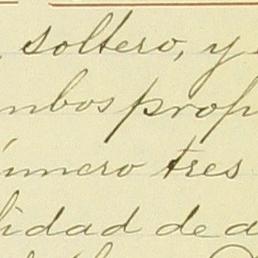 soltero, y
mbos prop
úmero tres
lidad de a